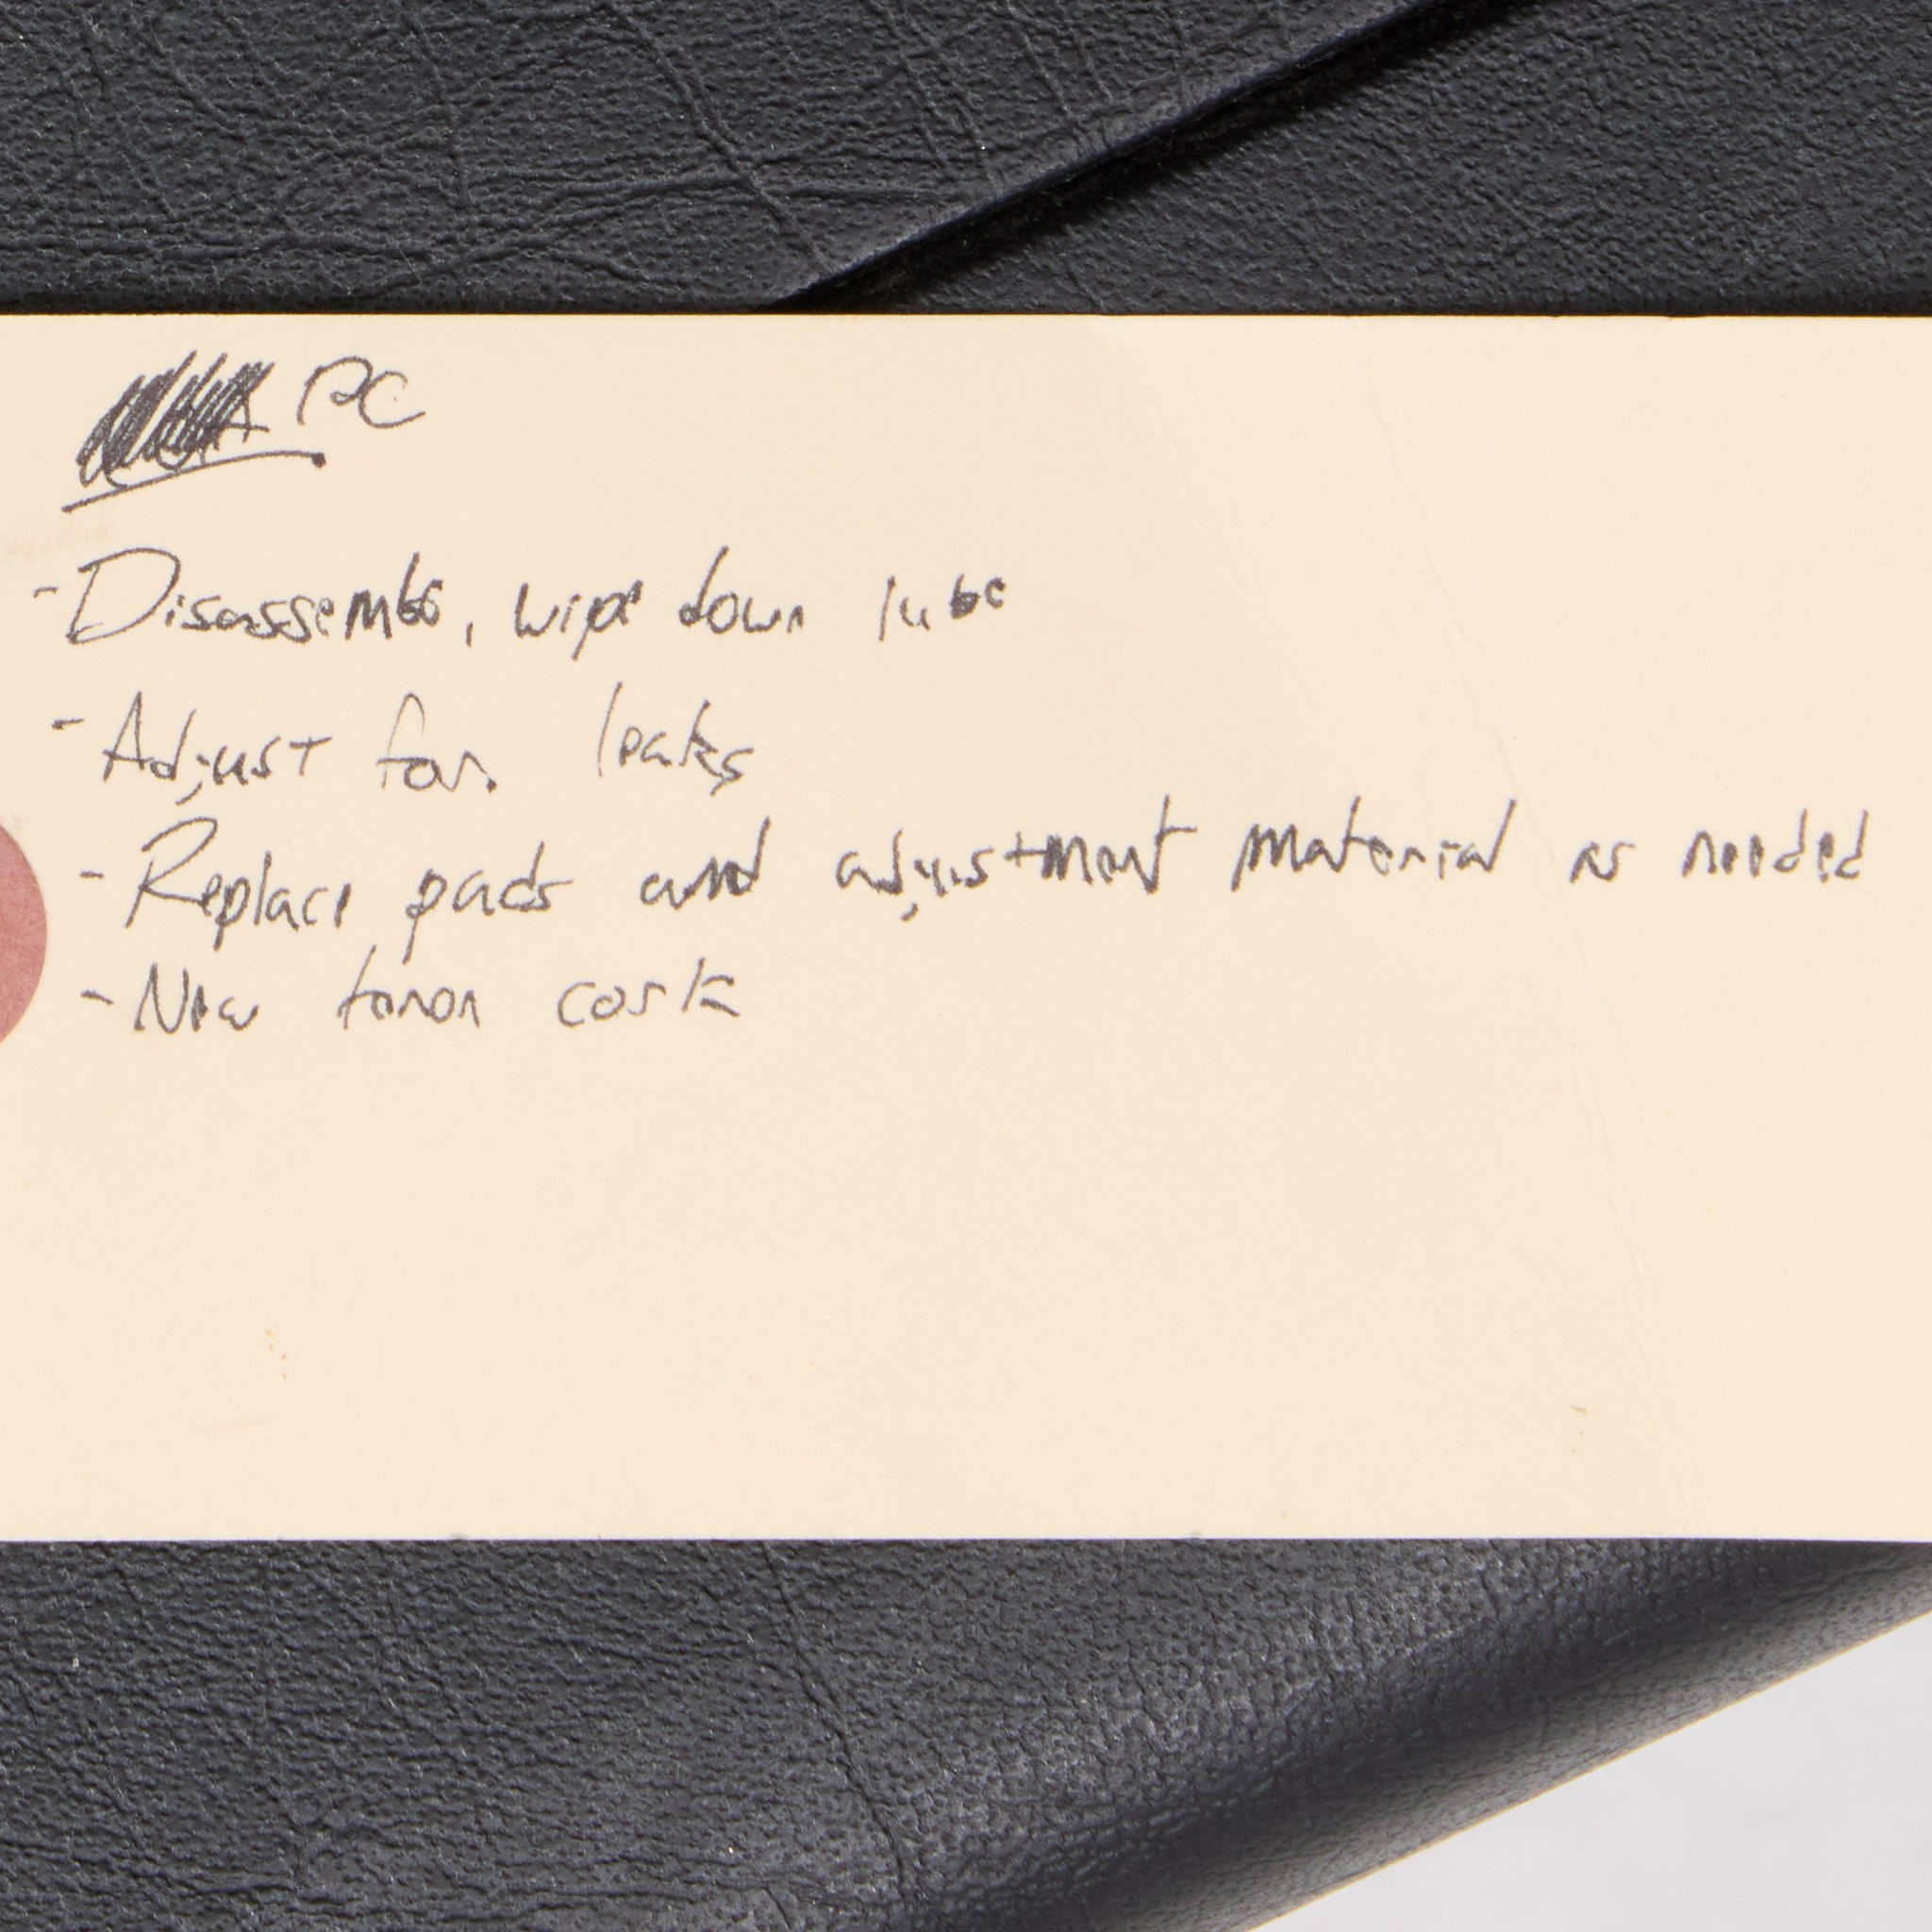 PC
- Disassemble, wipe down lube
- Adjust for leaks
- Replace pads and adjustment material as needed
- New tenon cork